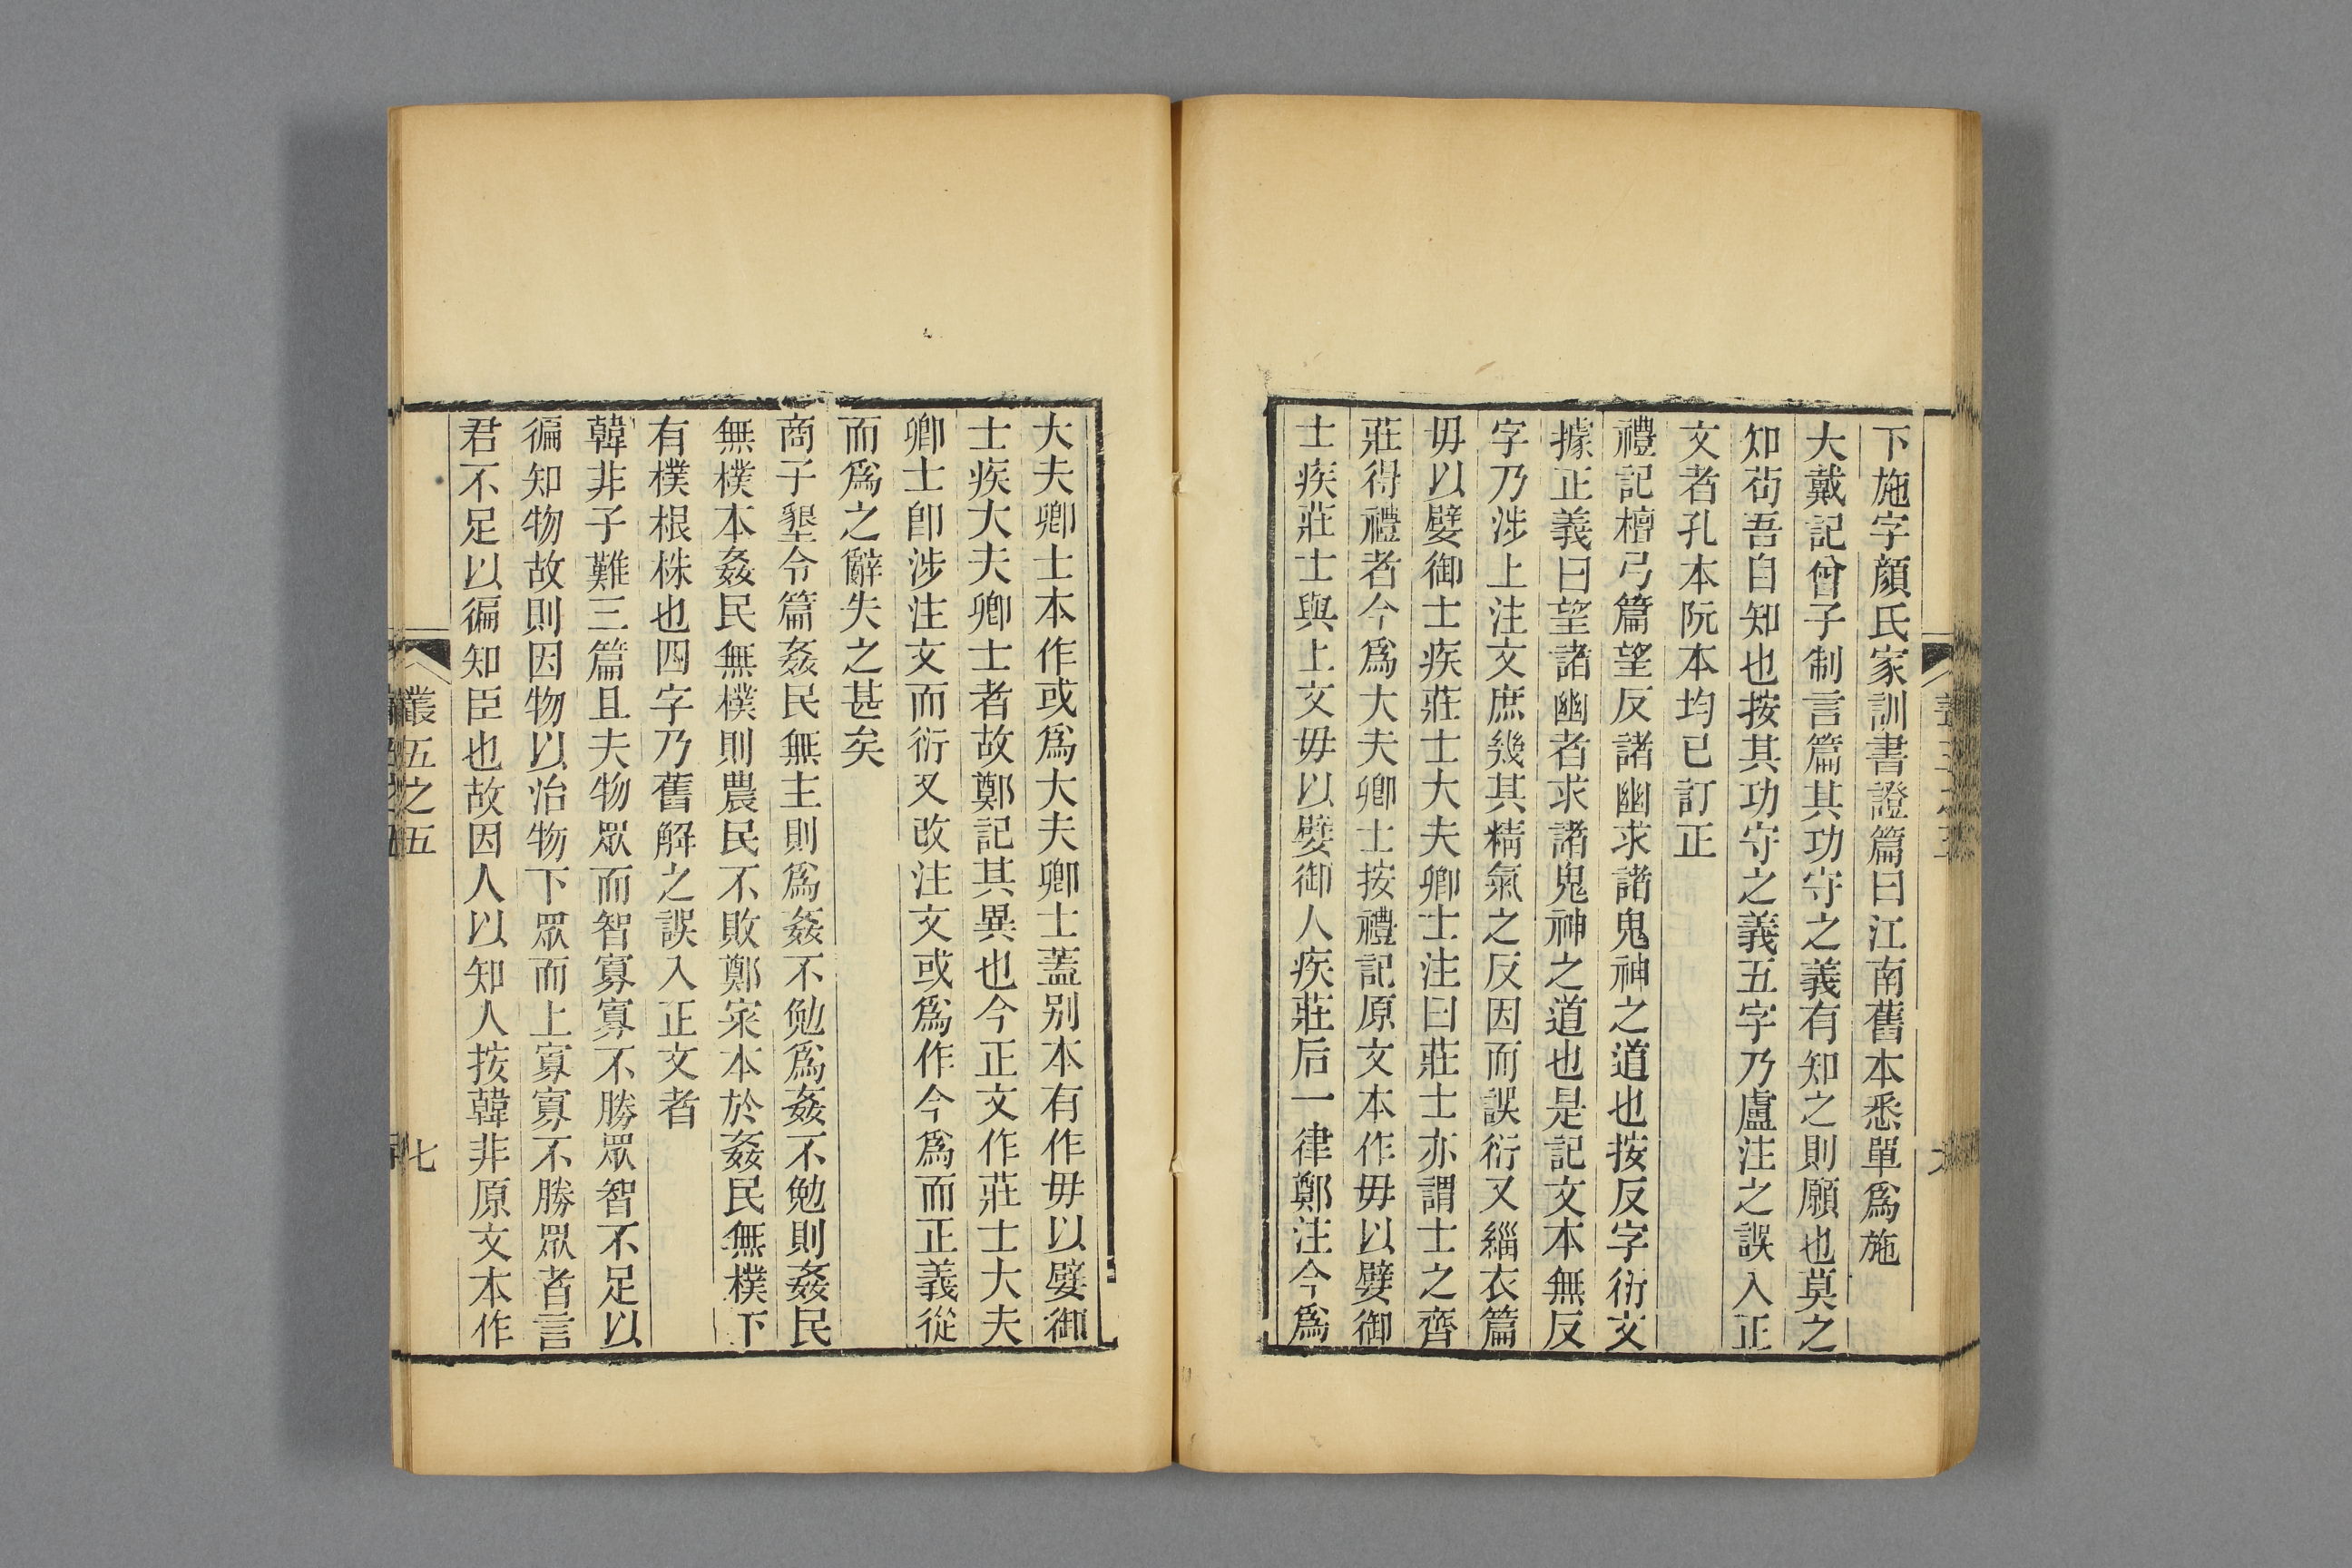 下施字顏氏家訓書證篇曰江南舊本悉單爲施
大戴記曾子制言篇其功守之義有知之則願也莫之
知苟吾自知也按其功守之義五字乃盧注之誤入正
文者孔本阮本均已訂正
禮記檀弓篇望反諸幽求諸鬼神之道也按反字衍文
據正義曰望諸幽者求諸鬼神之道也是記文本無反
字乃涉上注文庶幾其精氣之反因而誤衍又緇衣篇
毋以嬖御士疾莊士大夫卿士注曰莊士亦謂士之齊
莊得禮者今爲大夫卿士按禮記原文本作毋以嬖御
士疾莊士與上文毋以嬖御人疾莊后一律鄭注今爲
大夫卿士本作或爲大夫卿士蓋別本有作毋以嬖御
士疾大夫卿士者故鄭記其異也今正文作莊士大夫
卿士卽涉注文而衍又改注文或爲作今爲而正義從
而爲之辭失之甚矣
商子墾令篇姦民無主則爲姦不勉爲姦不勉則姦民
無樸本姦民無樸則農民不敗鄭宷本於姦民無樸下
有樸根株也四字乃舊解之誤入正文者
韓非子難三篇且夫物眾而智寡寡不勝眾智不足以
徧知物故則因物以治物下眾而上寡寡不勝眾者言
君不足以徧知臣也故因人以知人按韓非原文本作
叢五之五
七